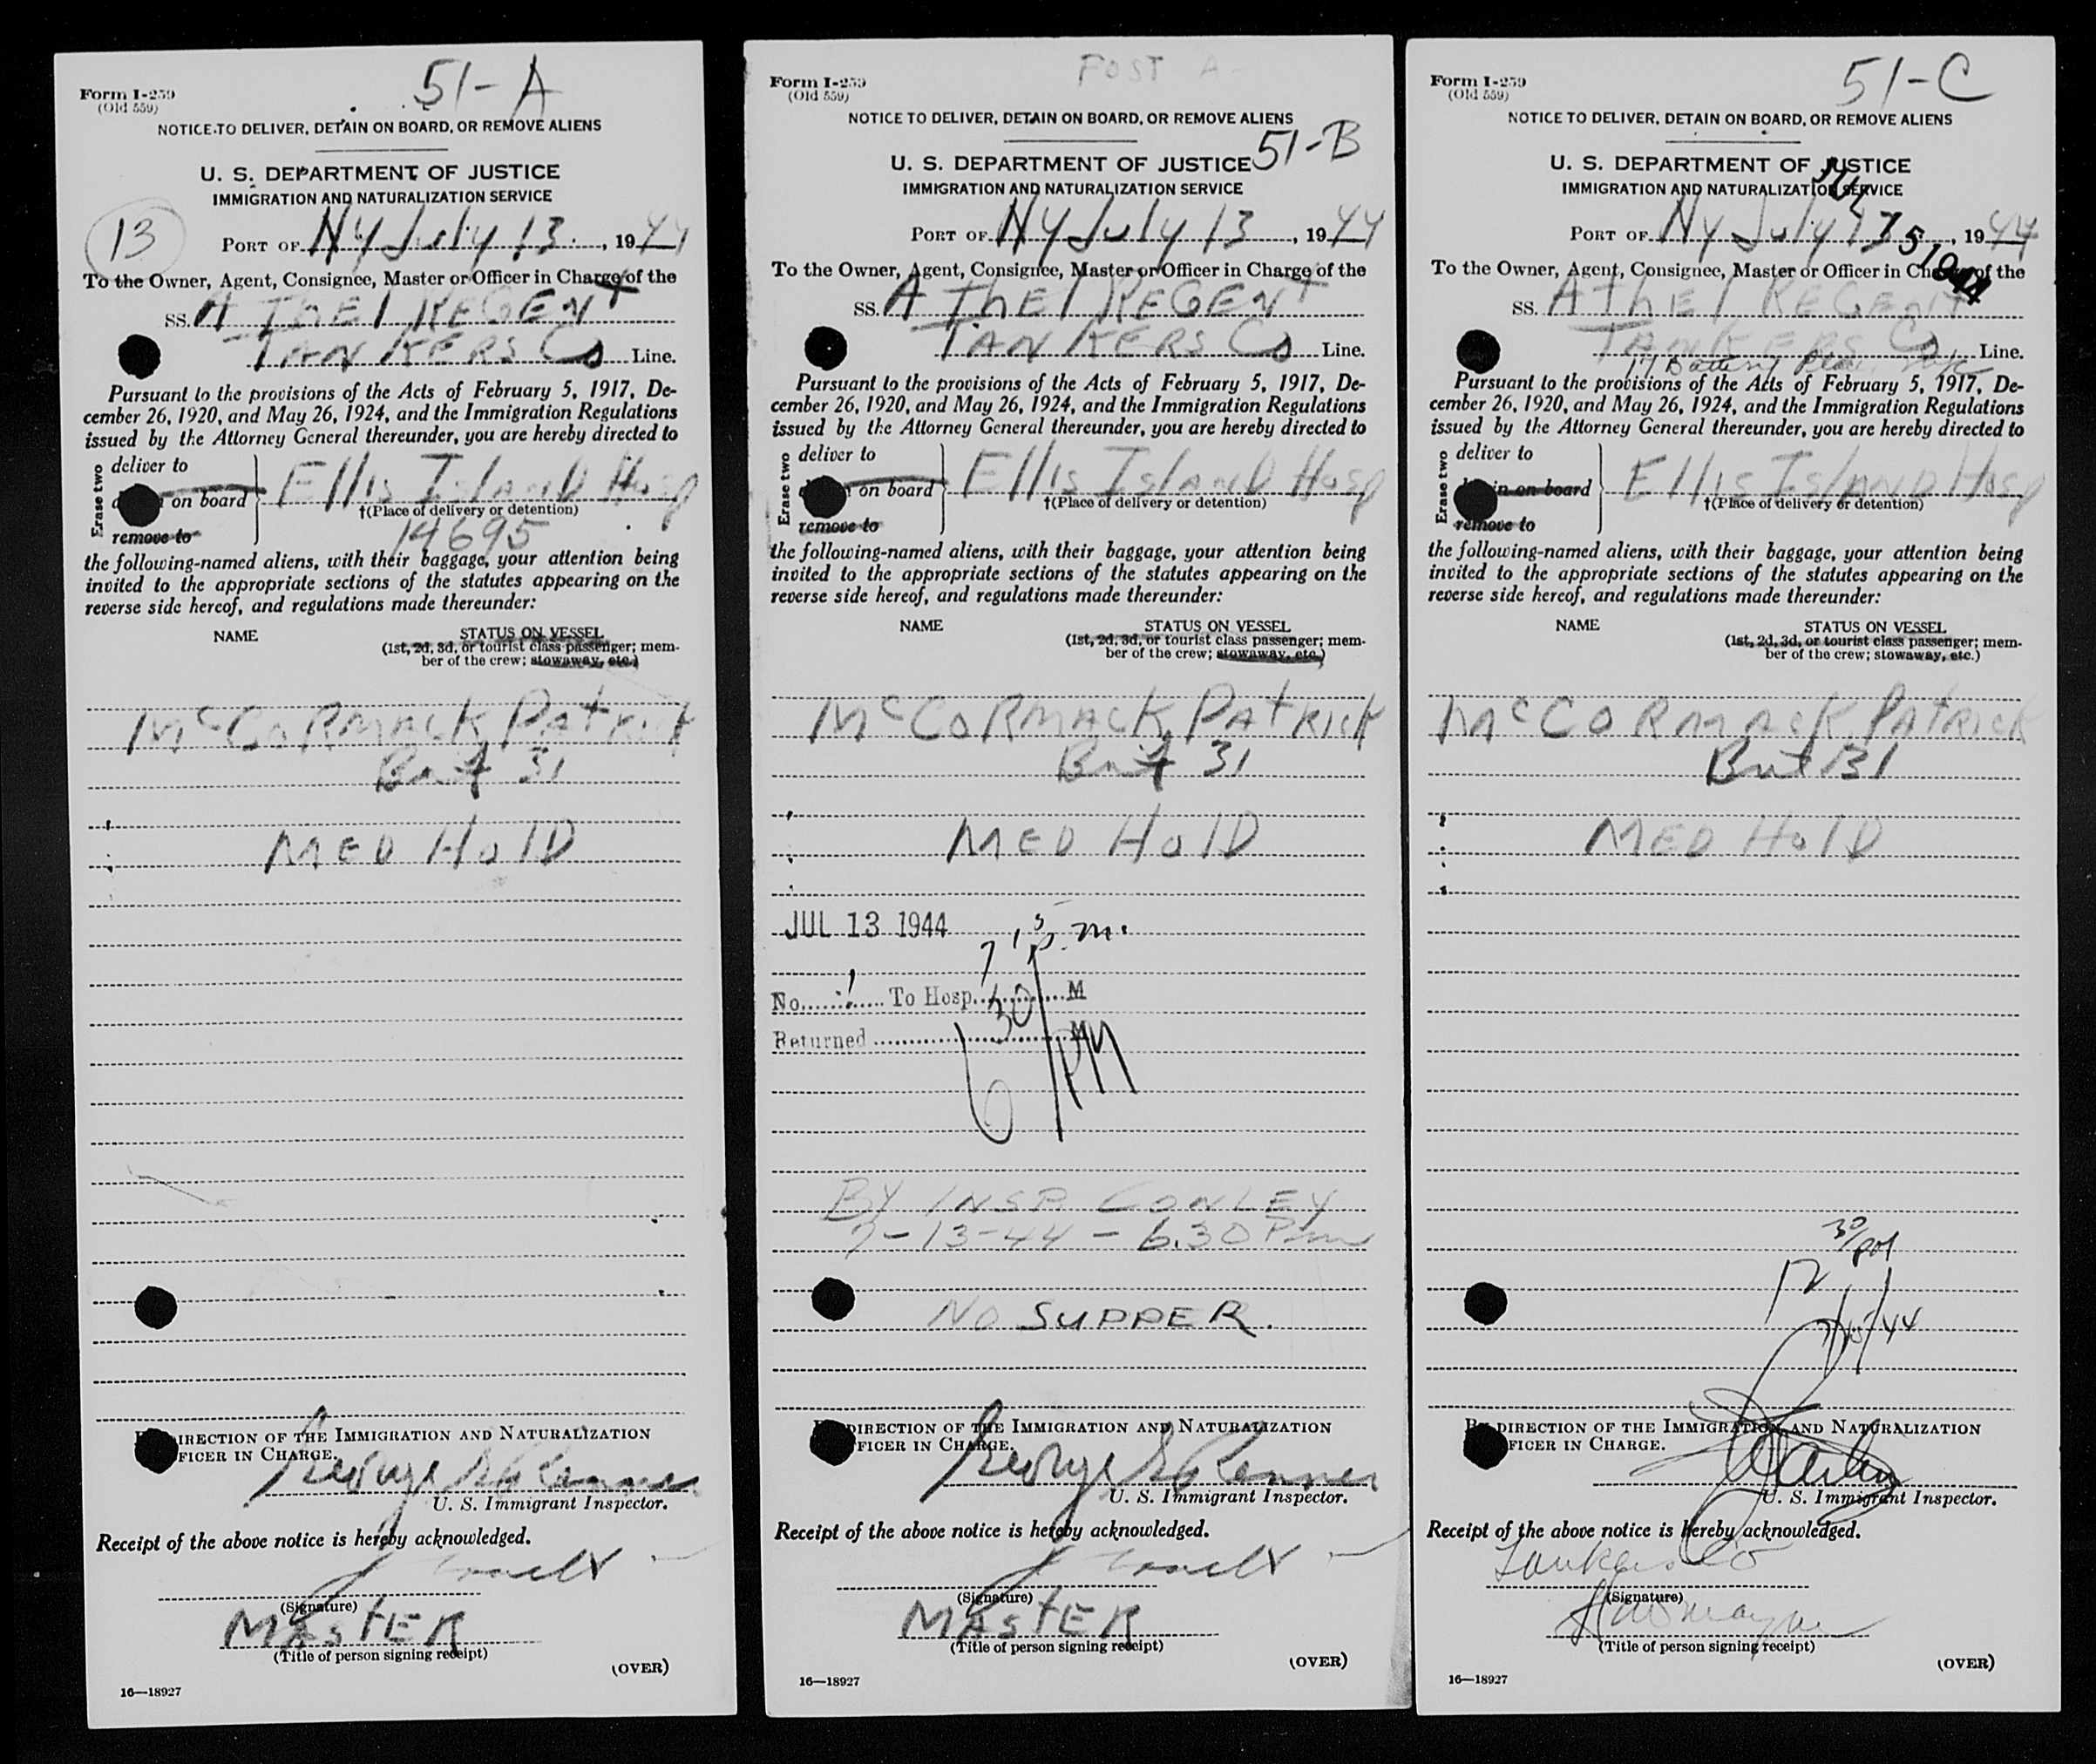 51-A
Form I-259
(Old 559)
NOTICE TO DELIVER, DETAIN ON BOARD, OR REMOVE ALIENS
U. S. DEPARTMENT OF JUSTICE
IMMIGRATION AND NATURALIZATION SERVICE
13
PORT OF NY July 13, 1944
To the Owner, Agent, Consignee, Master or Officer in Charge of the
SS. AThel REGENT
TANKERS Co Line.
Pursuant to the provisions of the Acts of February 5, 1917, De-
cember 26, 1920, and May 26, 1924, and the Immigration Regulations
issued by the Attorney General thereunder, you are hereby directed to
Erase two
deliver to
on board
remove to
Ellis Island Hosp
†(Place of delivery or detention)
14695
the following-named aliens, with their baggage, your attention being
invited to the appropriate sections of the statutes appearing on the
reverse side hereof, and regulations made thereunder:
NAME STATUS ON VESSEL
(1st, 2d, 3d, or tourist class passenger; mem-
ber of the crew; stowaway, etc.)
McCORMACK, PATRICK
Brit 31
MED HolD
BY DIRECTION OF THE IMMIGRATION AND NATURALIZATION
OFFICER IN CHARGE.
U. S. Immigrant Inspector.
Receipt of the above notice is hereby acknowledged.
(Signature)
MASTER
(Title of person signing receipt)
(OVER)
16—18927
POST A-
Form I-259
(Old 559)
NOTICE TO DELIVER, DETAIN ON BOARD, OR REMOVE ALIENS
51-B
U. S. DEPARTMENT OF JUSTICE
IMMIGRATION AND NATURALIZATION SERVICE
PORT OF NY July 13, 1944
To the Owner, Agent, Consignee, Master or Officer in Charge of the
SS. AThel REGENT
TANKERS Co Line.
Pursuant to the provisions of the Acts of February 5, 1917, De-
cember 26, 1920, and May 26, 1924, and the Immigration Regulations
issued by the Attorney General thereunder, you are hereby directed to
Erase two
deliver to
on board
remove to
Ellis Island Hosp
†(Place of delivery or detention)
the following-named aliens, with their baggage, your attention being
invited to the appropriate sections of the statutes appearing on the
reverse side hereof, and regulations made thereunder:
NAME STATUS ON VESSEL
(1st, 2d, 3d, or tourist class passenger; mem-
ber of the crew; stowaway, etc.)
McCORMACK, PATRICK
Brit 31
MED HolD
JUL 13 1944
7 15 p.m.
No. 1 To Hosp. M
Returned M
6 30/PM
BY INSP. CONLEY
7-13-44 - 6.30 Pm
NO SUPPER.
BY DIRECTION OF THE IMMIGRATION AND NATURALIZATION
OFFICER IN CHARGE.
U. S. Immigrant Inspector.
Receipt of the above notice is hereby acknowledged.
(Signature)
MASTER
(Title of person signing receipt)
(OVER)
16—18927
51-C
Form I-259
(Old 559)
NOTICE TO DELIVER, DETAIN ON BOARD, OR REMOVE ALIENS
U. S. DEPARTMENT OF JUSTICE
IMMIGRATION AND NATURALIZATION SERVICE
JUL 15 1944
PORT OF NY July 13, 1944
To the Owner, Agent, Consignee, Master or Officer in Charge of the
SS. AThel REGENT
TANKERS Co Line.
17 Battery Place NYC
Pursuant to the provisions of the Acts of February 5, 1917, De-
cember 26, 1920, and May 26, 1924, and the Immigration Regulations
issued by the Attorney General thereunder, you are hereby directed to
Erase two
deliver to
in on board
remove to
Ellis Island Hosp
†(Place of delivery or detention)
the following-named aliens, with their baggage, your attention being
invited to the appropriate sections of the statutes appearing on the
reverse side hereof, and regulations made thereunder:
NAME STATUS ON VESSEL
(1st, 2d, 3d, or tourist class passenger; mem-
ber of the crew; stowaway, etc.)
McCORMACK, PATRICK
Brit 31
MED HolD
12 30/PM
7/15/44
BY DIRECTION OF THE IMMIGRATION AND NATURALIZATION
OFFICER IN CHARGE.
U. S. Immigrant Inspector.
Receipt of the above notice is hereby acknowledged.
Tankers Co
(Signature)
(Title of person signing receipt)
(OVER)
16—18927